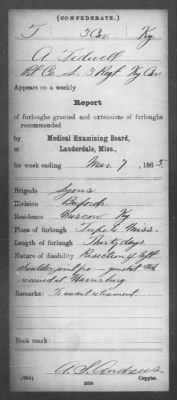 (CONFEDERATE.)
T 3 Cav Ky
A. Tidwell
Pvt. Co. L, 3 Regt. Ky Cav
Appears on a weekly
Report
of furloughs granted and extensions of furloughs
recommended
by Medical Examining Board,
Lauderdale, Miss.,
for week ending Mar 7, 1865
Brigade Lyons
Division Bufords
Residence Moscow Ky
Place of furlough Tupelo Miss.
Length of furlough Thirty days.
Nature of disability Resection of left
shoulder joint from gunshot Wd
received at Harrisburg
Remarks: To await retirement
Book mark:
A. S. Andrews
(634) Copyist.